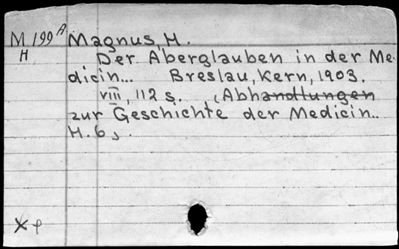 M 199 A Magnus, H.
H Der Aberglauben in der Me-
dicin... Breslau, Kern, 1903.
VIII, 112 s. (Abhandlungen
zur Geschichte der Medicin..
H. 6).